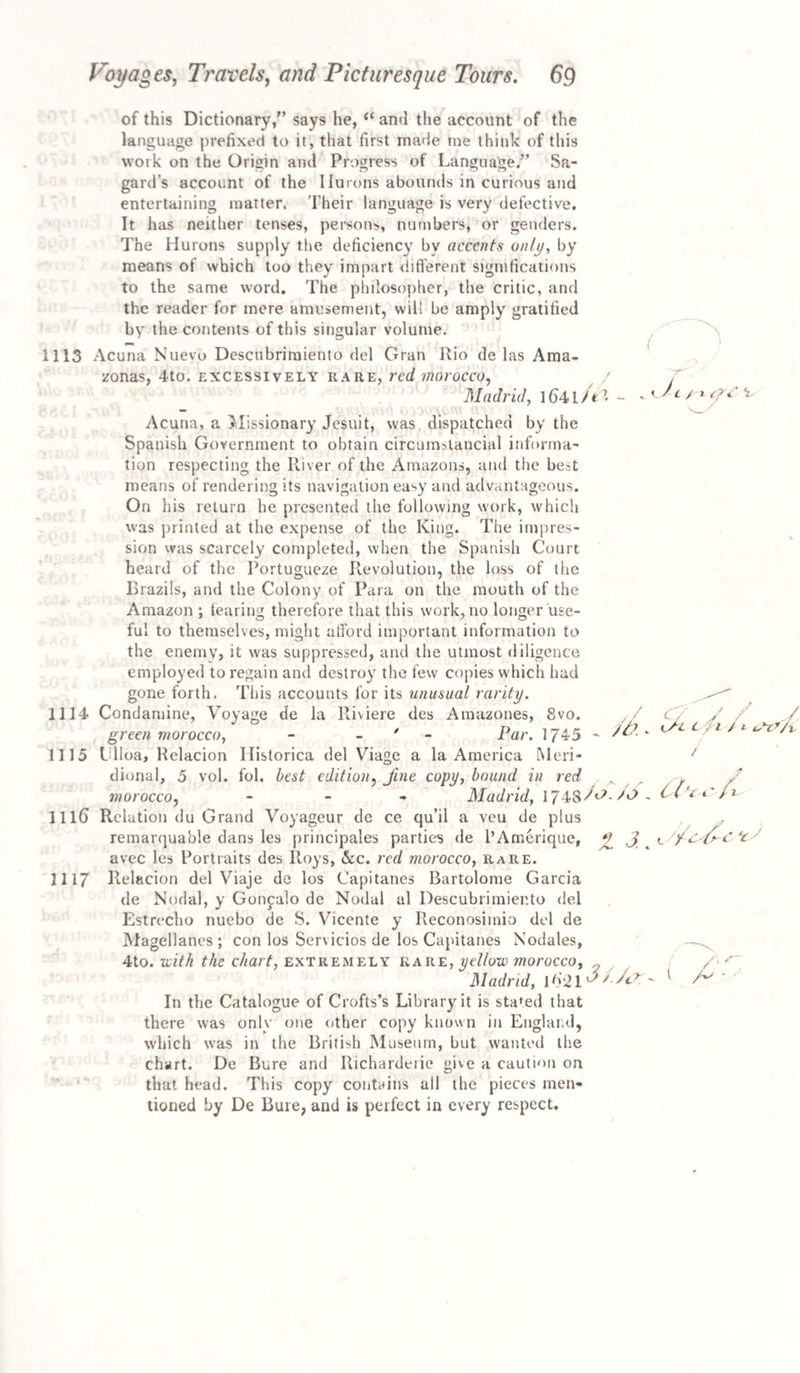 Voyages, Travels, and Picturesque Tours. 69
of this Dictionary,” says he, “ and the account of the
language prefixed to it, that first made me think of this
work on the Origin and Progress of Language.” Sa-
gard's account of the Hurons abounds in curious and
entertaining matter. Their language is very defective.
It has neither tenses, persons, numbers, or genders.
The Hurons supply the deficiency by accents only, by
means of which too they impart different significations
to the same word. The philosopher, the critic, and
the reader for mere amusement, will be amply gratified
by the contents of this singular volume.
1113 Acuna Nuevo Descubrimiento del Gran Rio de las Ama-
zonas, 4to. EXCESSIVELY RARE, red morocco,
Madrid, 1641
Acuna, a Missionary Jesuit, was dispatched by the
Spanish Government to obtain circumstancial informa-
tion respecting the River of the Amazons, and the best
means of rendering its navigation easy and advantageous.
On his return he presented the following work, which
was printed at the expense of the King. The impres-
sion was scarcely completed, when the Spanish Court
heard of the Portugueze Revolution, the loss of the
Brazils, and the Colony of Para on the mouth of the
Amazon ; fearing therefore that this work, no longer use-
ful to themselves, might afford important information to
the enemy, it was suppressed, and the utmost diligence
employed to regain and destroy the few copies which had
gone forth. This accounts for its unusual rarity.
1114 Condamine, Voyage de la Riviere des Amazones, 8vo.
green morocco, - - - Par. 1745
1115 Ulloa, Relacion Historica del Viage a la America Meri-
dional, 5 vol. fol. best edition, fine copy, bound in red
morocco, - - - Madrid, 1748
1116 Relation du Grand Voyageur de ce qu'il a veu de plus
remarquable dans les principales parties de l'Amérique,
avec les Portraits des Roys, &c. red morocco, RARE.
1117 Relacion del Viaje de los Capitanes Bartolome Garcia
de Nodal, y Gonçalo de Nodal al Descubrimiento del
Estrecho nuebo de S. Vicente y Reconosimio del de
Magellanes ; con los Servicios de los Capitanes Nodales,
4to. with the chart, EXTREMELY RARE, yellow morocco,
Madrid, 1621
In the Catalogue of Crofts's Library it is stated that
there was only one other copy known in England,
which was in the British Museum, but wanted the
chart. De Bure and Richarderie give a caution on
that head. This copy contains all the pieces men-
tioned by De Bure, and is perfect in every respect.